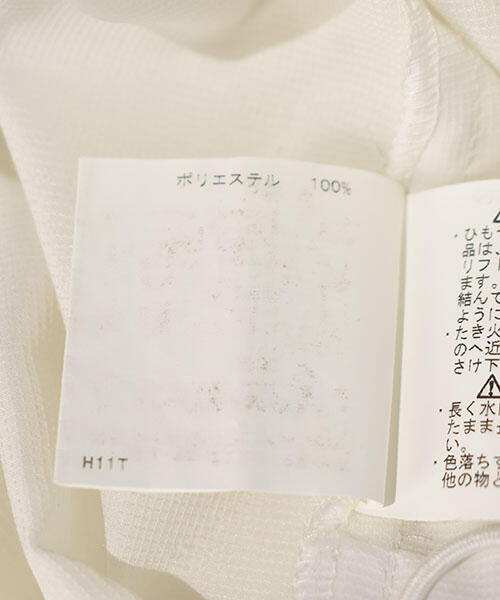 ポリエステル 100%
H11T
⚠
・ひも
品は、
リフ
ます。
結んで
ように
・たき火
のへ近
さけ下
⚠
・長く水
たまま長
い。
・色落ちす
他の物と